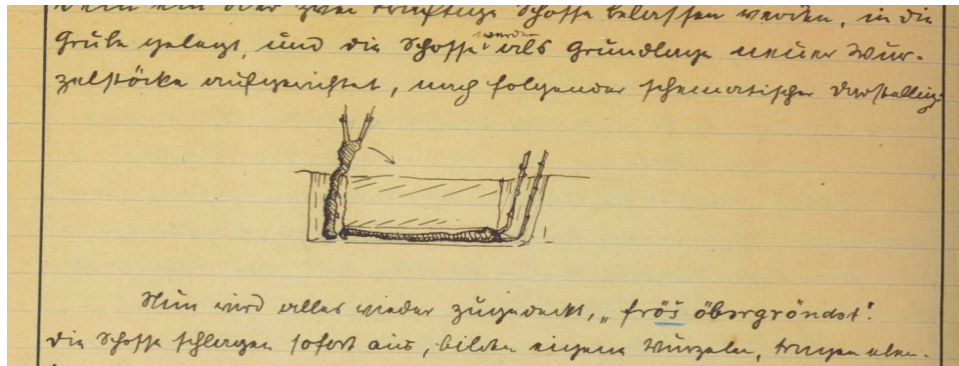 dem ein oder zwei kräftige Schosse belassen werden, in die
Grube gelegt, und die Schosse werden als Grundlage neuer Wur-
zelstöcke aufgerichtet, nach folgender schematischer Darstellung:
Nun wird alles wieder zugedeckt, „fröš öbərgröndət".
Die Schosse schlagen sofort aus, bilden eigene Wurzeln, tragen aber